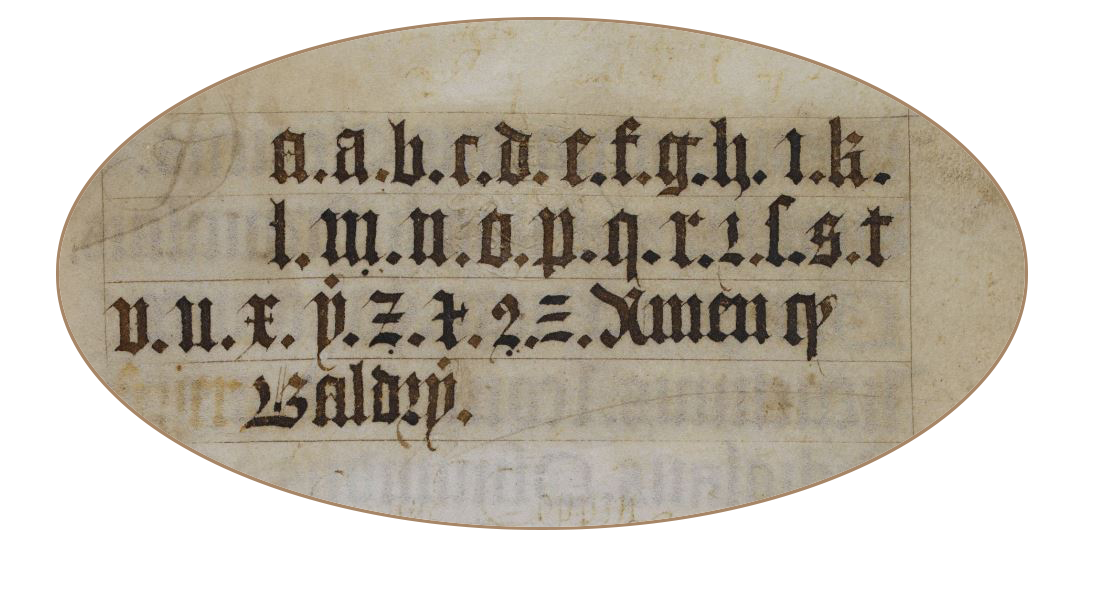 a.a.b.c.d.e.f.g.h.ı.k.
l.m.n.o.p.q.r.ꝛ.ſ.s.t
v.u.x.ẏ.z.⁊.ꝯ.=.Amen
Baldrẏ.